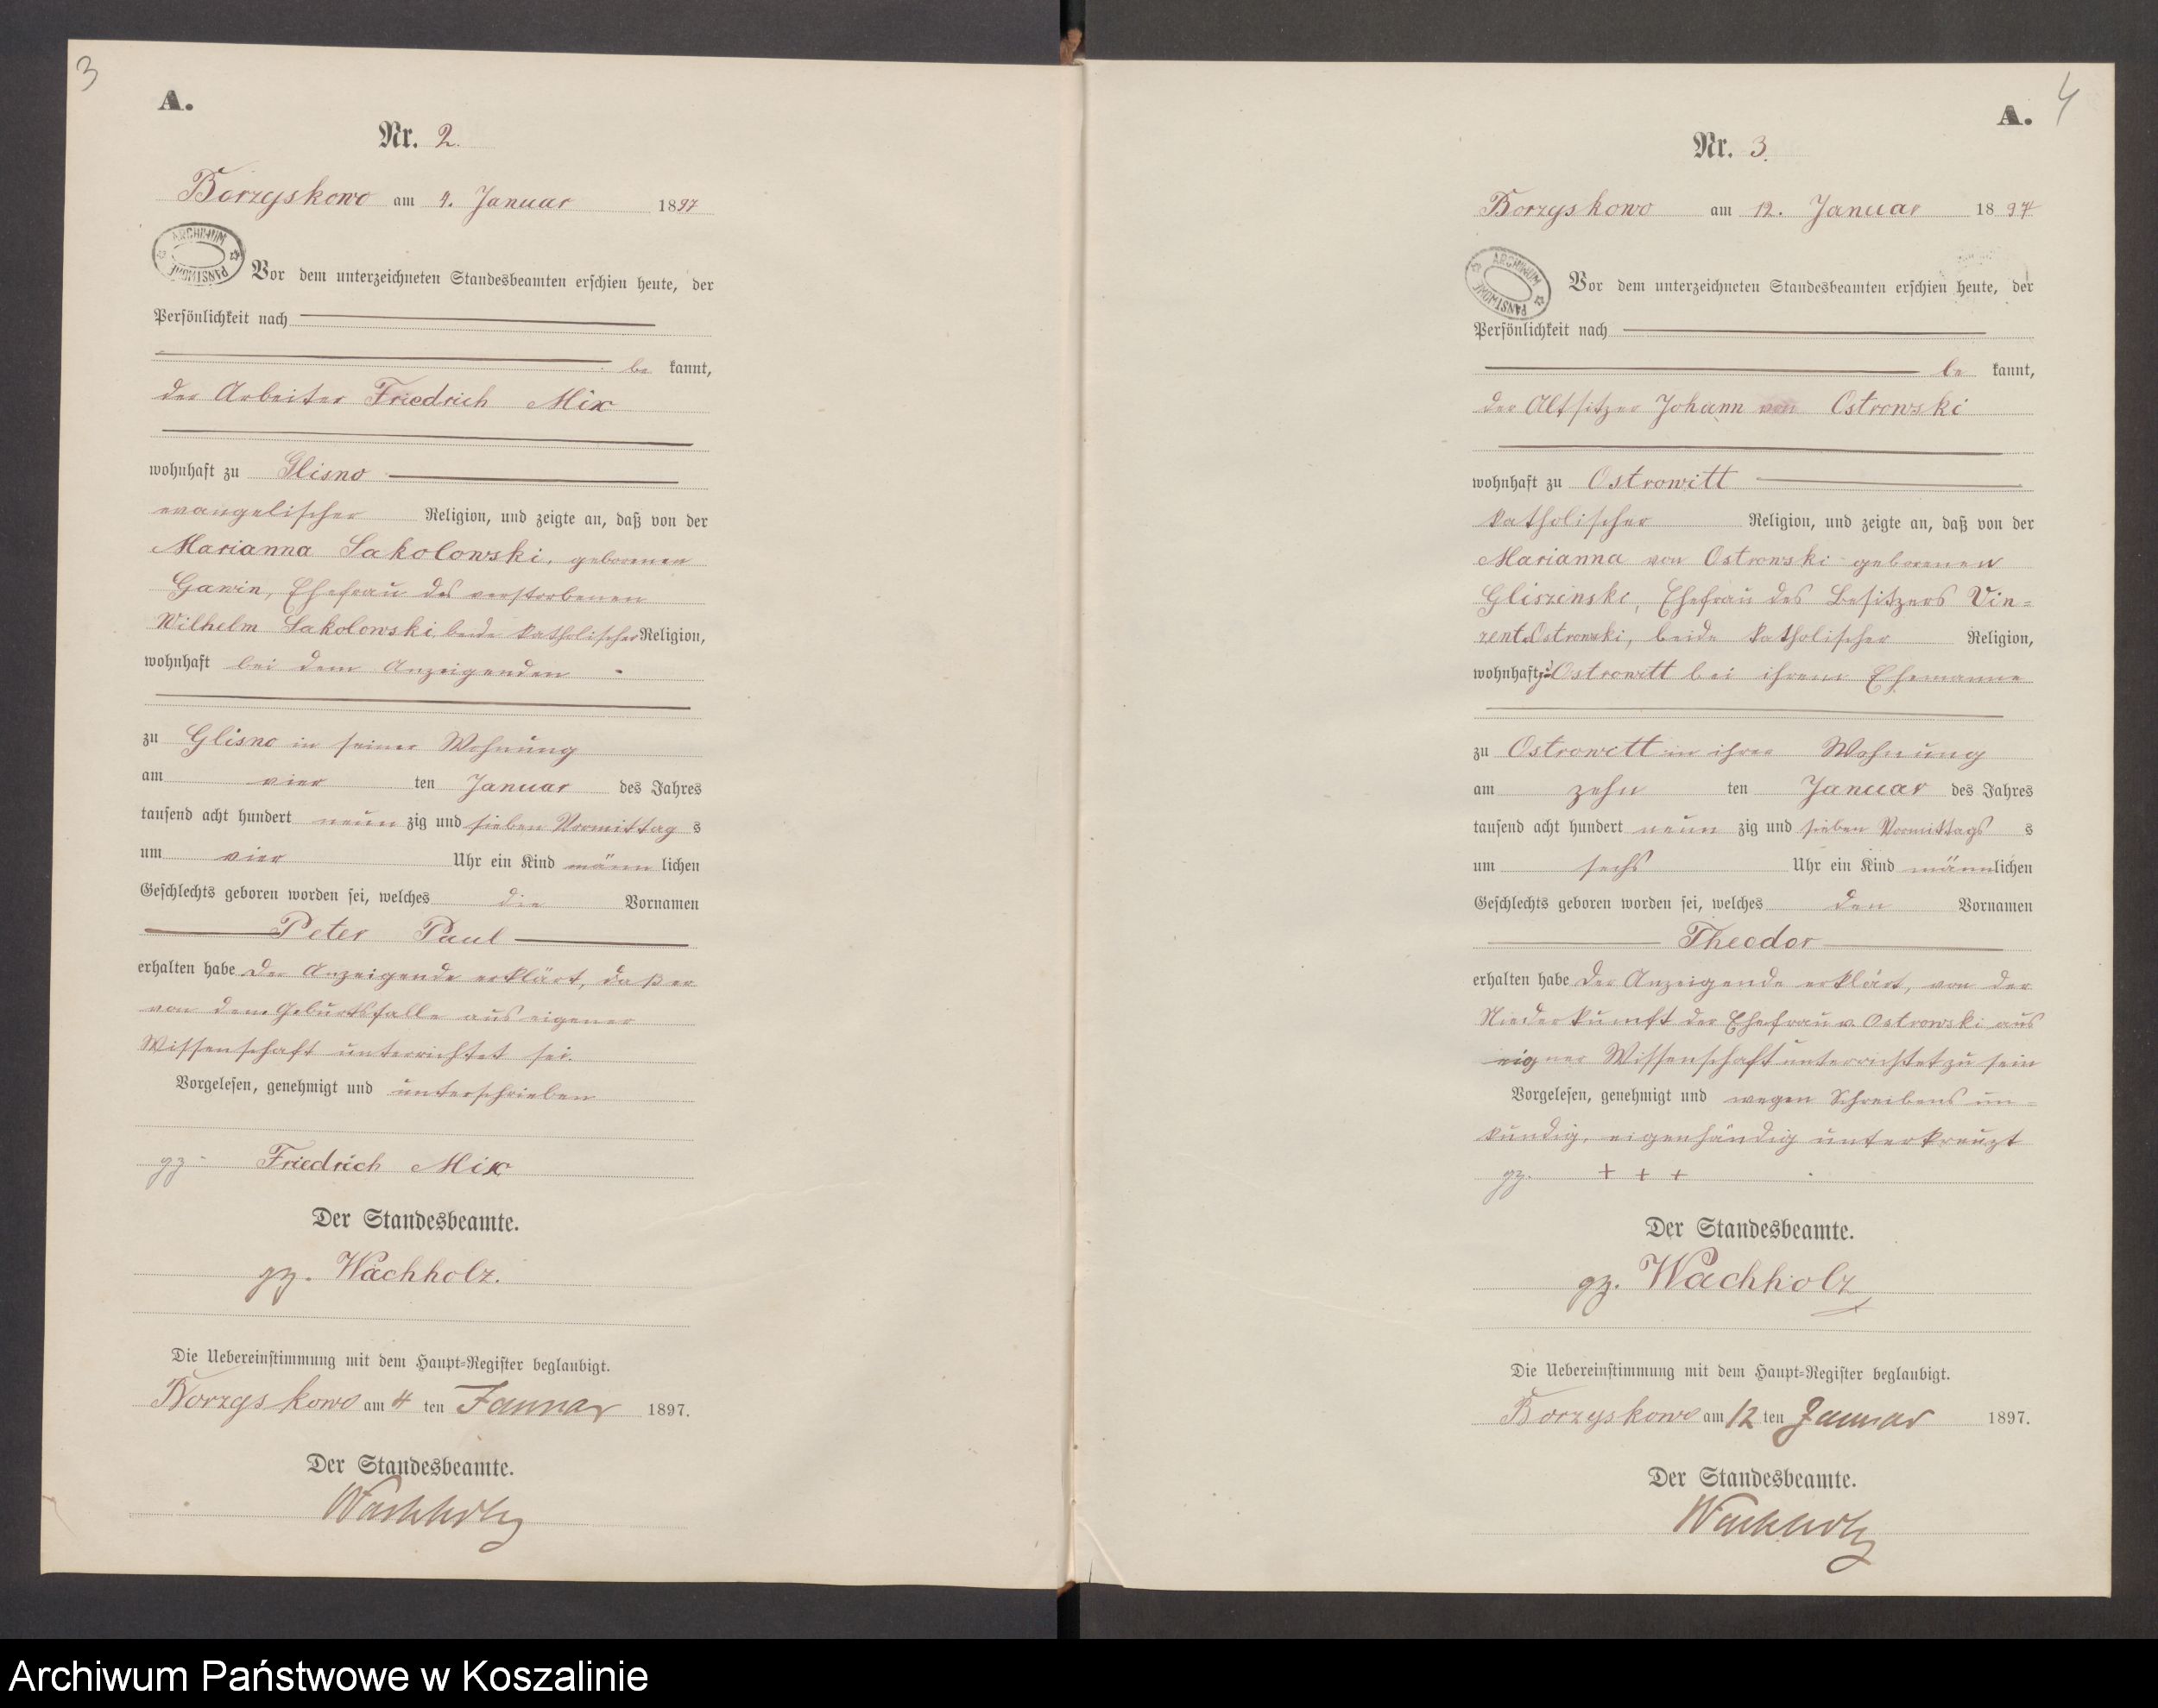 3
A.
Nr. 2.
Borzyskowo am 4. Januar 1897
ARCHIWUM PAŃSTWOWE
Vor dem unterzeichneten Standesbeamten erschien heute, der
Persönlichkeit nach
be kannt,
der Arbeiter Friedrich Mix
wohnhaft zu Glisno
evangelischer Religion, und zeigte an, daß von der
Marianna Sakolowski, geborenen
Gawin, Ehefrau des verstorbenen
Wilhelm Sakolowski beide katholischer Religion,
wohnhaft bei dem Anzeigenden
zu Glisno in seiner Wohnung
am vier ten Januar des Jahres
tausend acht hundert neun zig und sieben Vormittag s
um vier Uhr ein Kind männ lichen
Geschlechts geboren worden sei, welches die Vornamen
Peter Paul
erhalten habe Der Anzeigende erklärt, daß er
von dem Geburtsfalle aus eigener
Wissenschaft unterrichtet sei.
Vorgelesen, genehmigt und unterschrieben
gz. Friedrich Mix
Der Standesbeamte.
gz. Wachholz.
Die Uebereinstimmung mit dem Haupt=Register beglaubigt.
Borzyskowo am 4 ten Januar 1897.
Der Standesbeamte.
Wachholz
4
A.
Nr. 3.
Borzyskowo am 12. Januar 1897
ARCHIWUM PAŃSTWOWE
Vor dem unterzeichneten Standesbeamten erschien heute, der
Persönlichkeit nach
be kannt,
der Altsitzer Johann von Ostrowski
wohnhaft zu Ostrowitt
katholischer Religion, und zeigte an, daß von der
Marianna von Ostrowski geborenen
Gliszinski, Ehefrau des Besitzers Vin=
zent Ostrowski, beide katholischer Religion,
wohnhaft zu Ostrowitt bei ihrem Ehemanne
zu Ostrowitt in ihrer Wohnung
am zehn ten Januar des Jahres
tausend acht hundert neun zig und sieben Vormittags s
um sechs Uhr ein Kind männlichen
Geschlechts geboren worden sei, welches den Vornamen
Theodor
erhalten habe Der Anzeigende erklärt, von der
Niederkunft der Ehefrau v. Ostrowski aus
eigner Wissenschaft unterrichtet zu sein
Vorgelesen, genehmigt und wegen Schreibens un=
kundig, eigenhändig unterkreuzt
gz. + + +
Der Standesbeamte.
gz. Wachholz
Die Uebereinstimmung mit dem Haupt=Register beglaubigt.
Borzyskowo am 12 ten Januar 1897.
Der Standesbeamte.
Wachholz
Archiwum Państwowe w Koszalinie